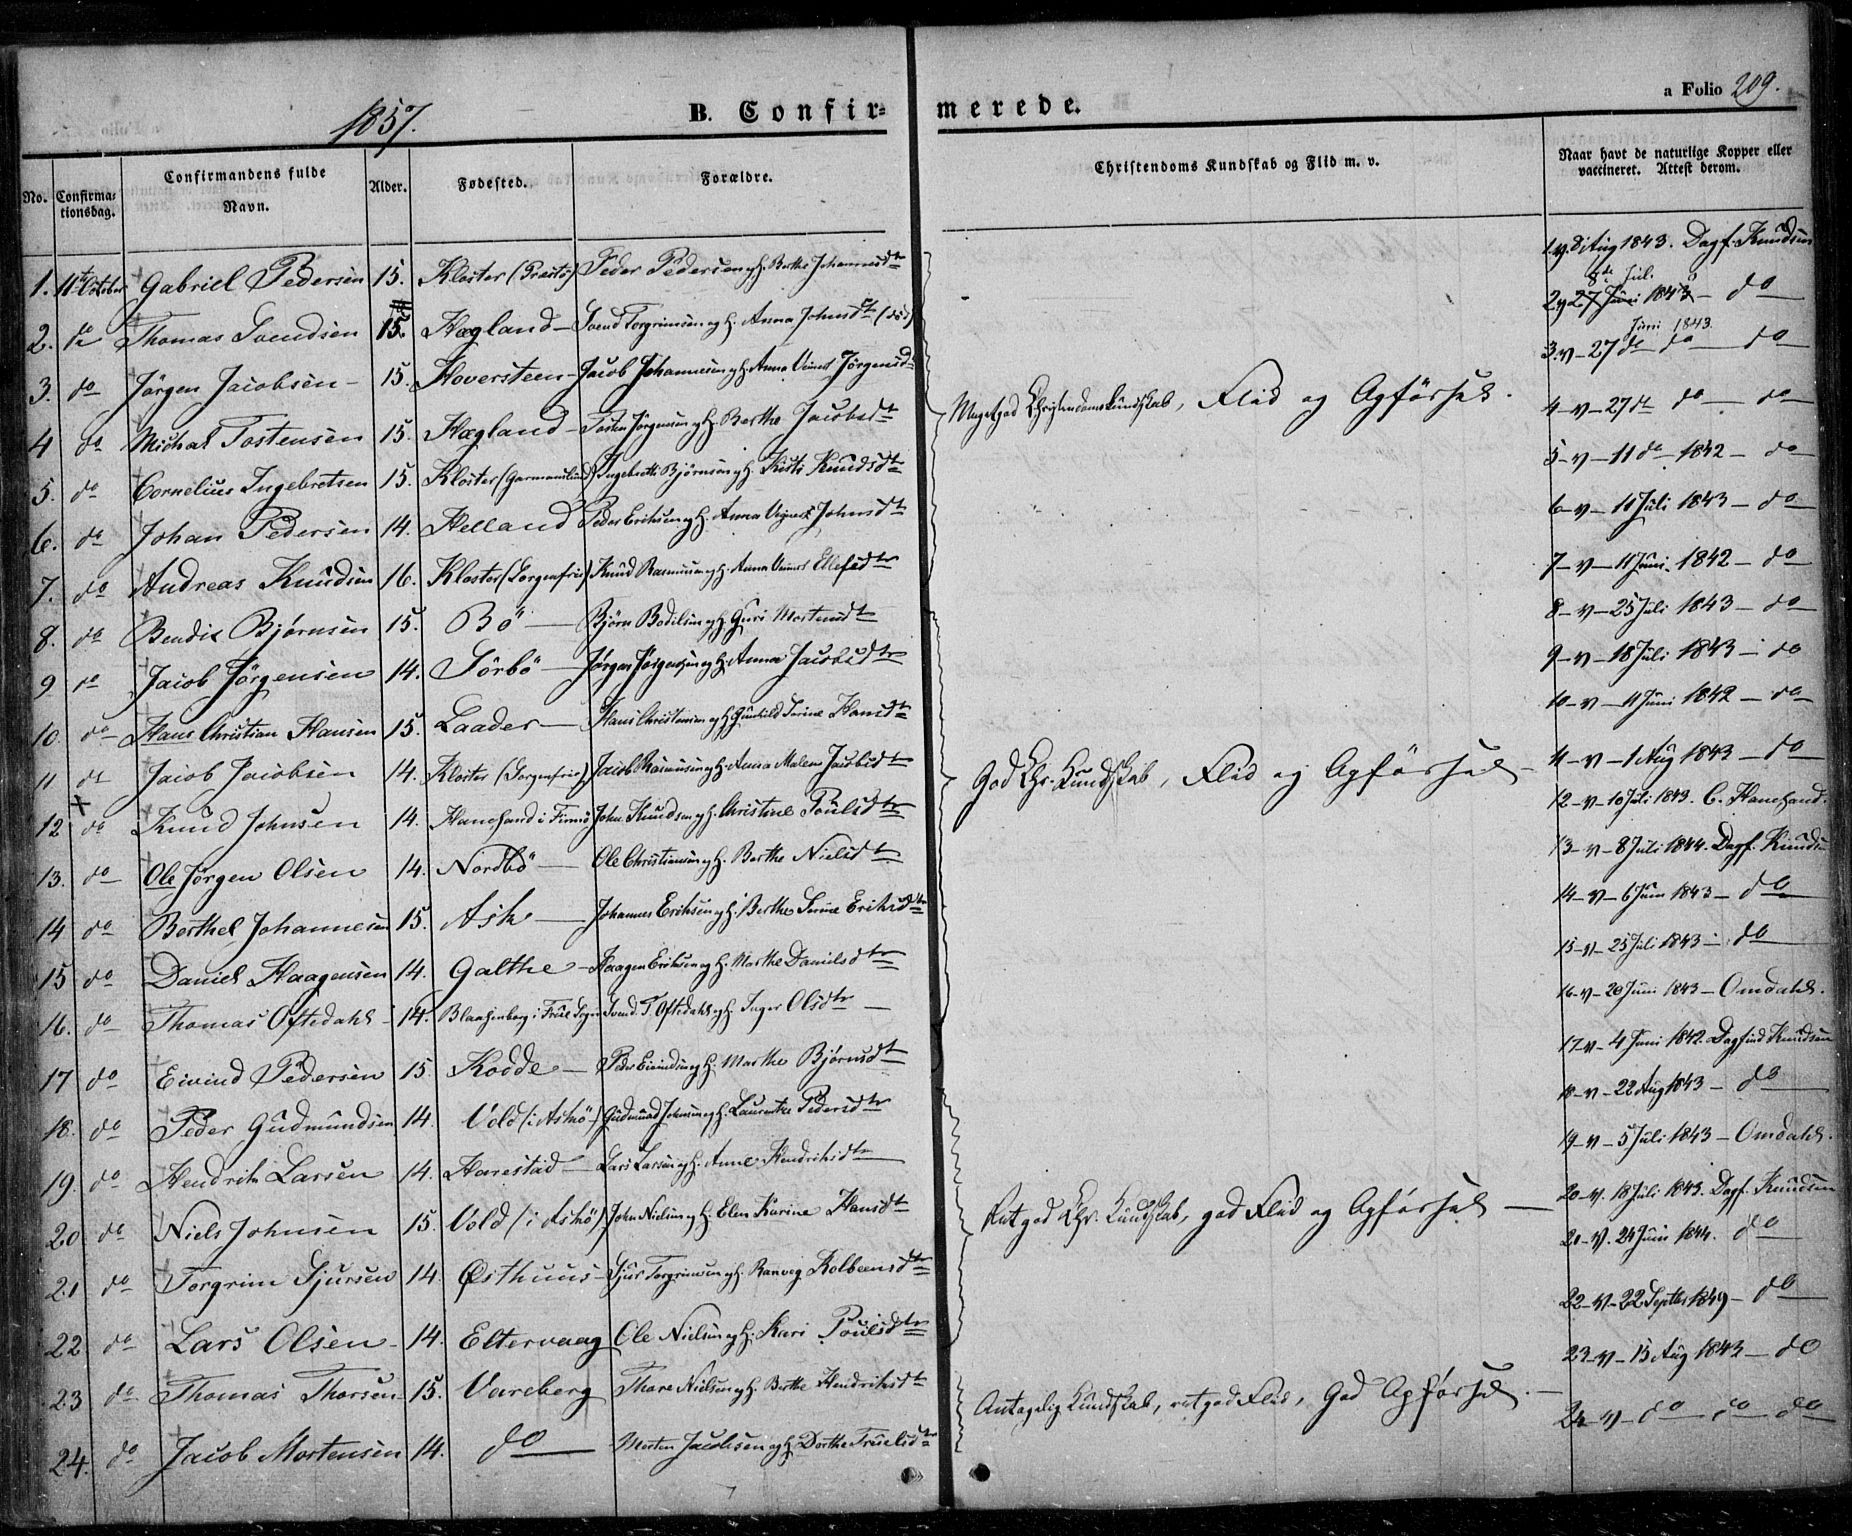 1857.
B. Confirmerede.
a Folio 209.
No. Confirmationsdag. Confirmandens fulde Navn. Alder. Fødested. Forældre. Christendoms Kundskab og Flid m. v. Naar havt de naturlige Kopper eller vaccineret. Attest derom.
1. 11te October Gabriel Pedersen 15. Kloster (Prestø) Peder Pedersen og H. Berthe Johannesdtr 1. v. 8 Aug 1843. Dagf. Knudsen
2. do Thomas Svendsen 15. Hægland – Svend Torgrimsen og H. Anna Johnsdtr (død) 2. v. 8de Juli 1843 – do
3. do Jörgen Jacobsen – 15. Hoversteen – Jacob Johannesen og H. Anna Jörgensdtr 3. v – 27de Juni 1843. do
4 do Michal Tostensen 15. Hægland – Tosten Jörgensen og H. Berthe Jacobsdtr 4 – v – 27de do – do
5. do Cornelius Ingebretsen 15. Kloster Ingebrett Bjørnsen og H. Knudsdtr 5 – v – 11 do – 1842 – do
6. do Johan Pedersen 14. Helland Peder Eriksen og H. Anna Johnsdtr 6 – v – 11 Juli 1843 – do
7. do Andreas Knudsen 16. Kloster (Sorgenfrie) Knud Rasmussen og H. Anna Ellefsdtr 7 – v – 11 Juni 1842 – do
8. do Bendix Bjørnsen 15. Bö – Björn Bodilsen og H. Guri Mortensdtr 8 – v – 25 Juli 1843 – do
9 do Jacob Jörgensen 14. Sörbö – Jörgen Jörgensen og H. Anna Jacobsdtr 9 – v – 18 Juli 1843 – do
10. do Hans Christian Hansen 15. Laader – Hans Christensen og H. Gunhild Serine Hansdtr 10 – v – 11 Juni 1842 – do
11 do Jacob Jacobsen 14. Kloster (Sorgenfrie) Jacob Rasmussen og H. Anna Malene Jacobsdtr 11 – v – 1 Aug 1843 – do
12 do Knud Johnsen 14. John Knudsen og H. Christine Poulsdtr 12 – v – 10 Juli 1843.
13. do Ole Jörgen Olsen 14. Nordbö – Ole Christiansen og H. Berthe Nielsdtr 13 – v – 8 Juli 1844. Dagf. Knudsen
14 do Berthel Johannesen 15. Ask – Johannes Eriksen og H. Berthe Serine Eriksdtr 14 – v – 6 Juni 1843 – do
15 do Daniel Haagensen 14. Galthe – Haagen Eriksen og H. Marthe Danielsdtr 15 – v – 25 Juli 1843 – do
16. do Thomas Oftedahl – 14. Svend T Oftedahl og H. Inger Olsdtr – 16 – v – 20 Juni 1843 – Omdahl.
17 do Eivind Pedersen 15. Kodde – Peder Eivindsen og H. Marthe Bjørnsdtr 17 – v – 4 Juni 1842. Dagfind Knudsen
18. do Peder Gudmundsen 14. Vold (i Askö) Gudmund Johnsen og H. Laurentze Pedersdtr 18 – v – 22 Aug 1843 – do
19. do Hendrik Larsen 14. Harestad – Lars Larsen og H. Anne Hendriksdtr 19 – v – 5 Juli 1843 – Omdahl.
20 do Niels Johnsen 15. Vold (i Askö) John Nielsen og H. Elen Karine Hansdtr 20 – v. 18 Juli 1843. Dagf. Knudsen
21 do Torgrim Sjursen 14. Østhuus – Sjur Torgrimsen og H. Ranveg Kolbeensdtr 21 – v. 24 Juni 1844. do
22 do Lars Olsen – 14. Eltervaag Ole Nielsen og H. Kari Poulsdtr 22 – v – 22 Septbr 1849 – do
23 do Thomas Thorsen 15. Vareberg Thore Nielsen og H. Berthe Hendriksdtr 23 – v – 15 Aug 1843 – do
24. do Jacob Mortensen 14. do – Morten Jacobsen og H. Dorthe Truelsdtr 24 – v – do – do do
Megetgod Christendomskundskab, Flid og Opförsel.
God Chr. Kundskab, Flid og Opförsel –
Retgod Chr. Kundskab, god Flid og Opförsel –
Antagelig Kundskab, retgod Flid, God Opförsel. –